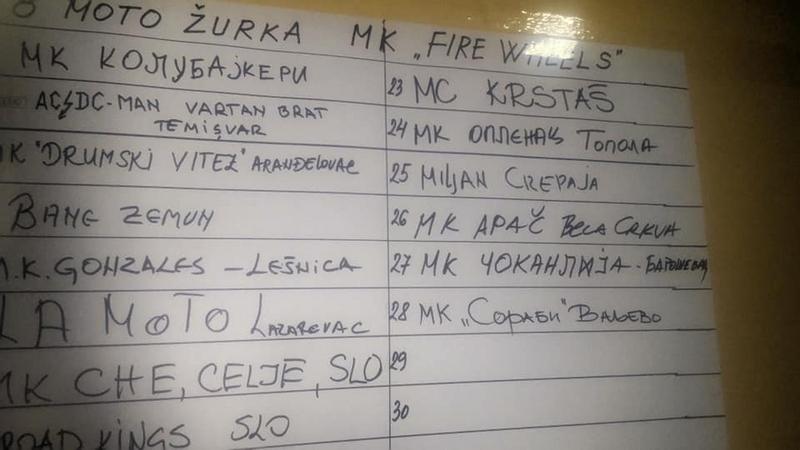 MOTO ŽURKA MK „FIRE WHEELS"
MK КОЛУБАЈКЕРИ
AC⚡DC-MAN VARTAN BRAT
TEMIŞVAR
K "DRUMSKI VITEZ" ARANĐELOVAC
BANE ZEMUN
M.K. GONZALES - LEŠNICA
LA MOTO LAZAREVAC
MK CHE, CELJE, SLO
ROAD KINGS SLO
23 MC KRSTAŠ
24 MK ОПЛЕНАЦ Топола
25 MILJAN CREPAJA
26 MK APAČ BELA CRKVA
27 MK ЧОКАНЛИЈА -
28 MK „Сораби" Ваљево
29
30